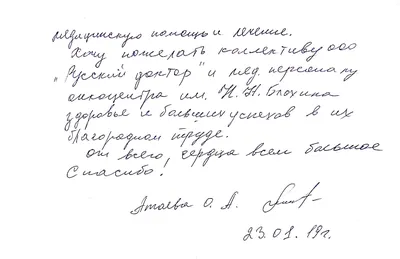 медицинскую помощь и лечение.
Хочу пожелать коллективу ООО
"Русский доктор" и мед. персоналу
онкоцентра им. Н. Н. Блохина
здоровье и больших успехов в их
благородном труде.
От всего, сердца всем большое
Спасибо!
Атаева О. А.
23.01.19г.